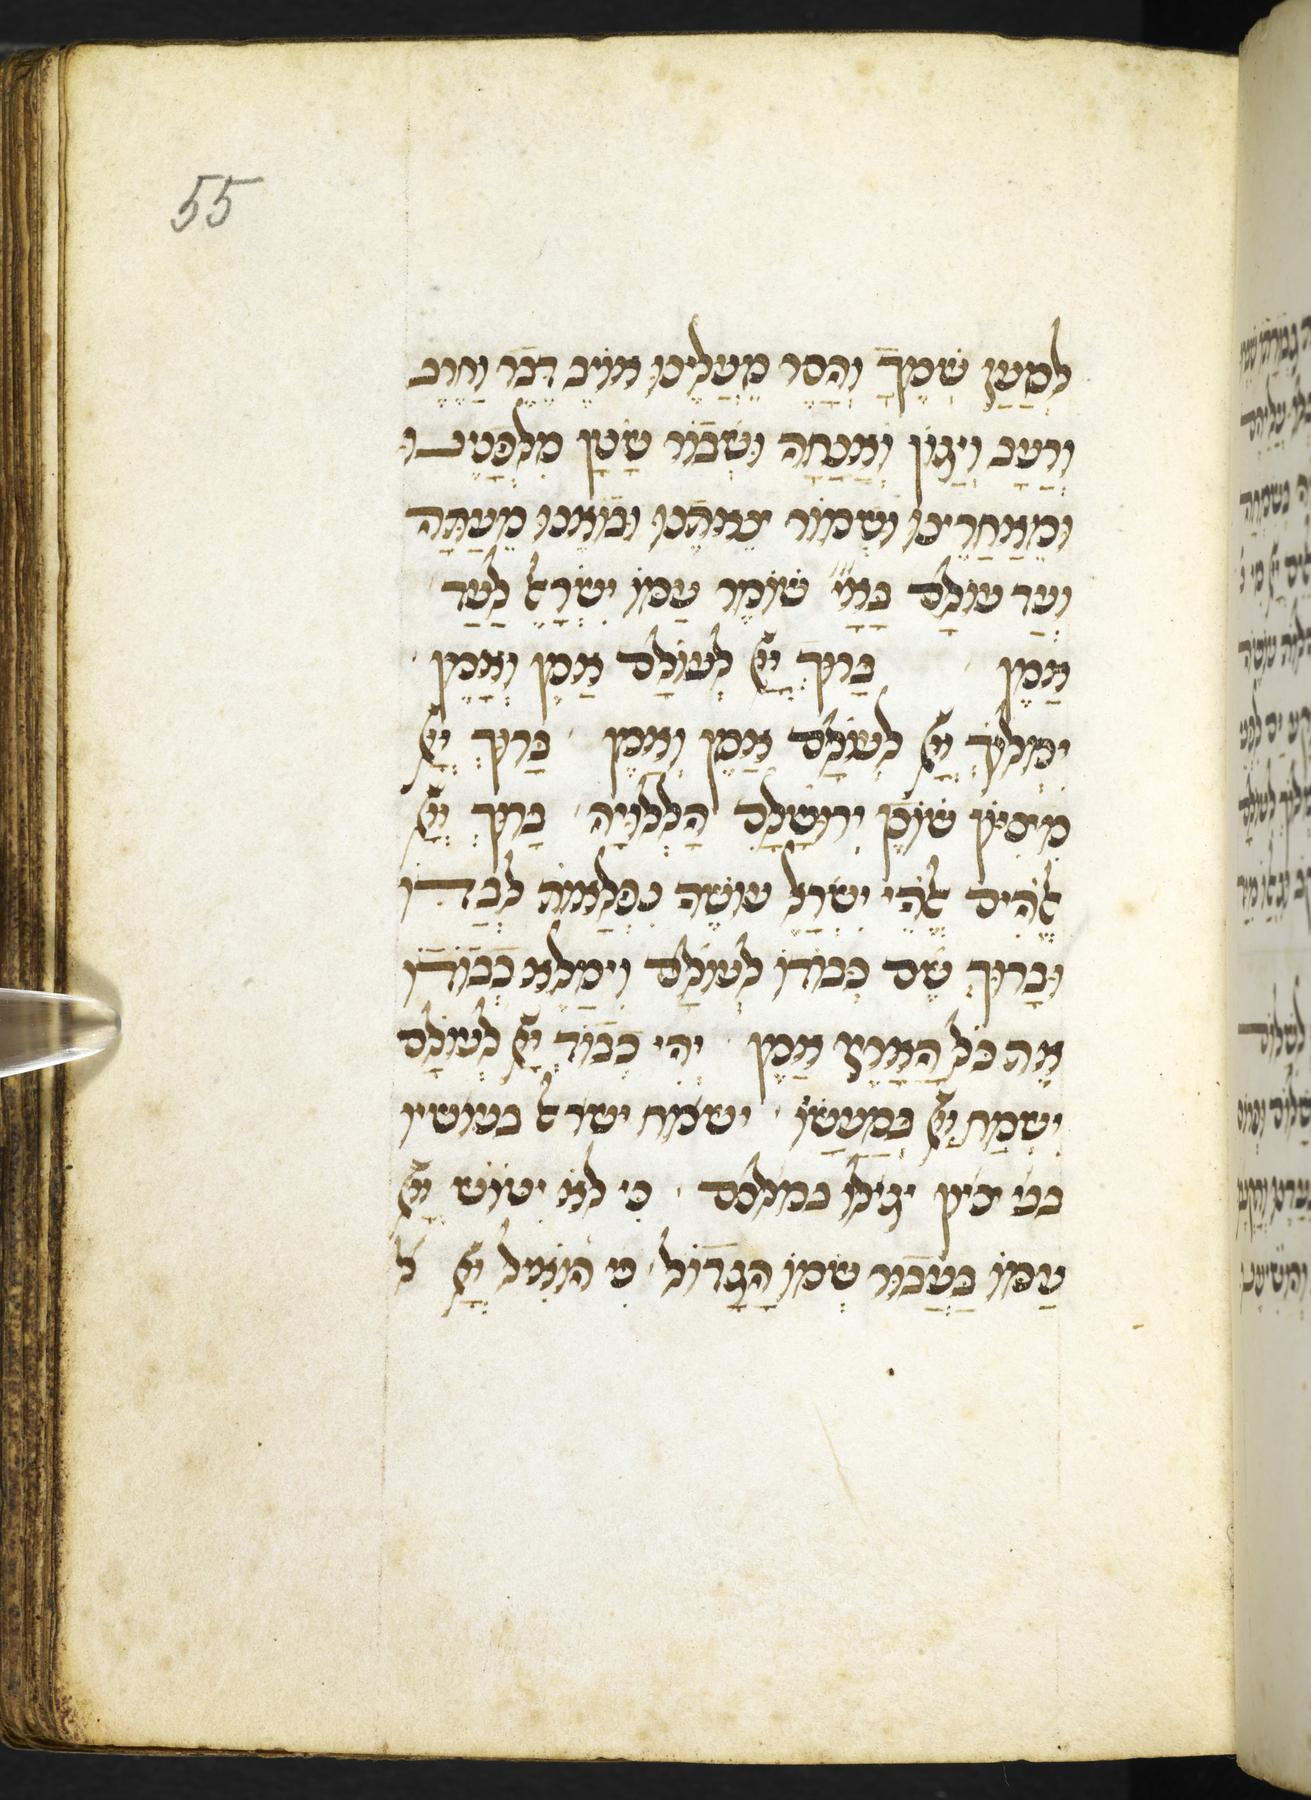 55
לְמַעַן שְׁמֶךָ וְהָסֵר מֵעָלֵינוּ אוֹיֵב דֶּבֶר וְחֶרֶב
וְרָעָב וְיָגוֹן וַאֲנָחָה וּשְׁבוֹר שָׂטָן מִלְּפָנֵינוּ
וּמֵאַחֲרֵינוּ וּשְׁמוֹר צֵאתֵנוּ וּבוֹאֵנוּ מֵעַתָּה
וְעַד עוֹלָם בָּאַ"י שׁוֹמֵר עַמּוֹ יִשְׂרָאֵל לָעַד
אָמֵן בָּרוּךְ יְיָ לְעוֹלָם אָמֵן וְאָמֵן
יִמְלֹךְ יְיָ לְעוֹלָם אָמֵן וְאָמֵן בָּרוּךְ יְיָ
מִצִּיּוֹן שׁוֹכֵן יְרוּשָׁלָם הַלְלוּיָהּ בָּרוּךְ יְיָ
אֱלֹהִים אֱלֹהֵי יִשְׂרָאֵל עוֹשֶׂה נִפְלָאוֹת לְבַדּוֹ
וּבָרוּךְ שֵׁם כְּבוֹדוֹ לְעוֹלָם וְיִמָּלֵא כְבוֹדוֹ
אֶת כָּל הָאָרֶץ אָמֵן יְהִי כְבוֹד יְיָ לְעוֹלָם
יִשְׂמַח יְיָ בְּמַעֲשָׂיו ישמח ישראל בעושיו
בני ציון יגילו במלכם כִּי לֹא יִטּוֹשׁ יְיָ
עַמּוֹ בַּעֲבוּר שְׁמוֹ הַגָּדוֹל כִּי הוֹאִיל יְיָ ל